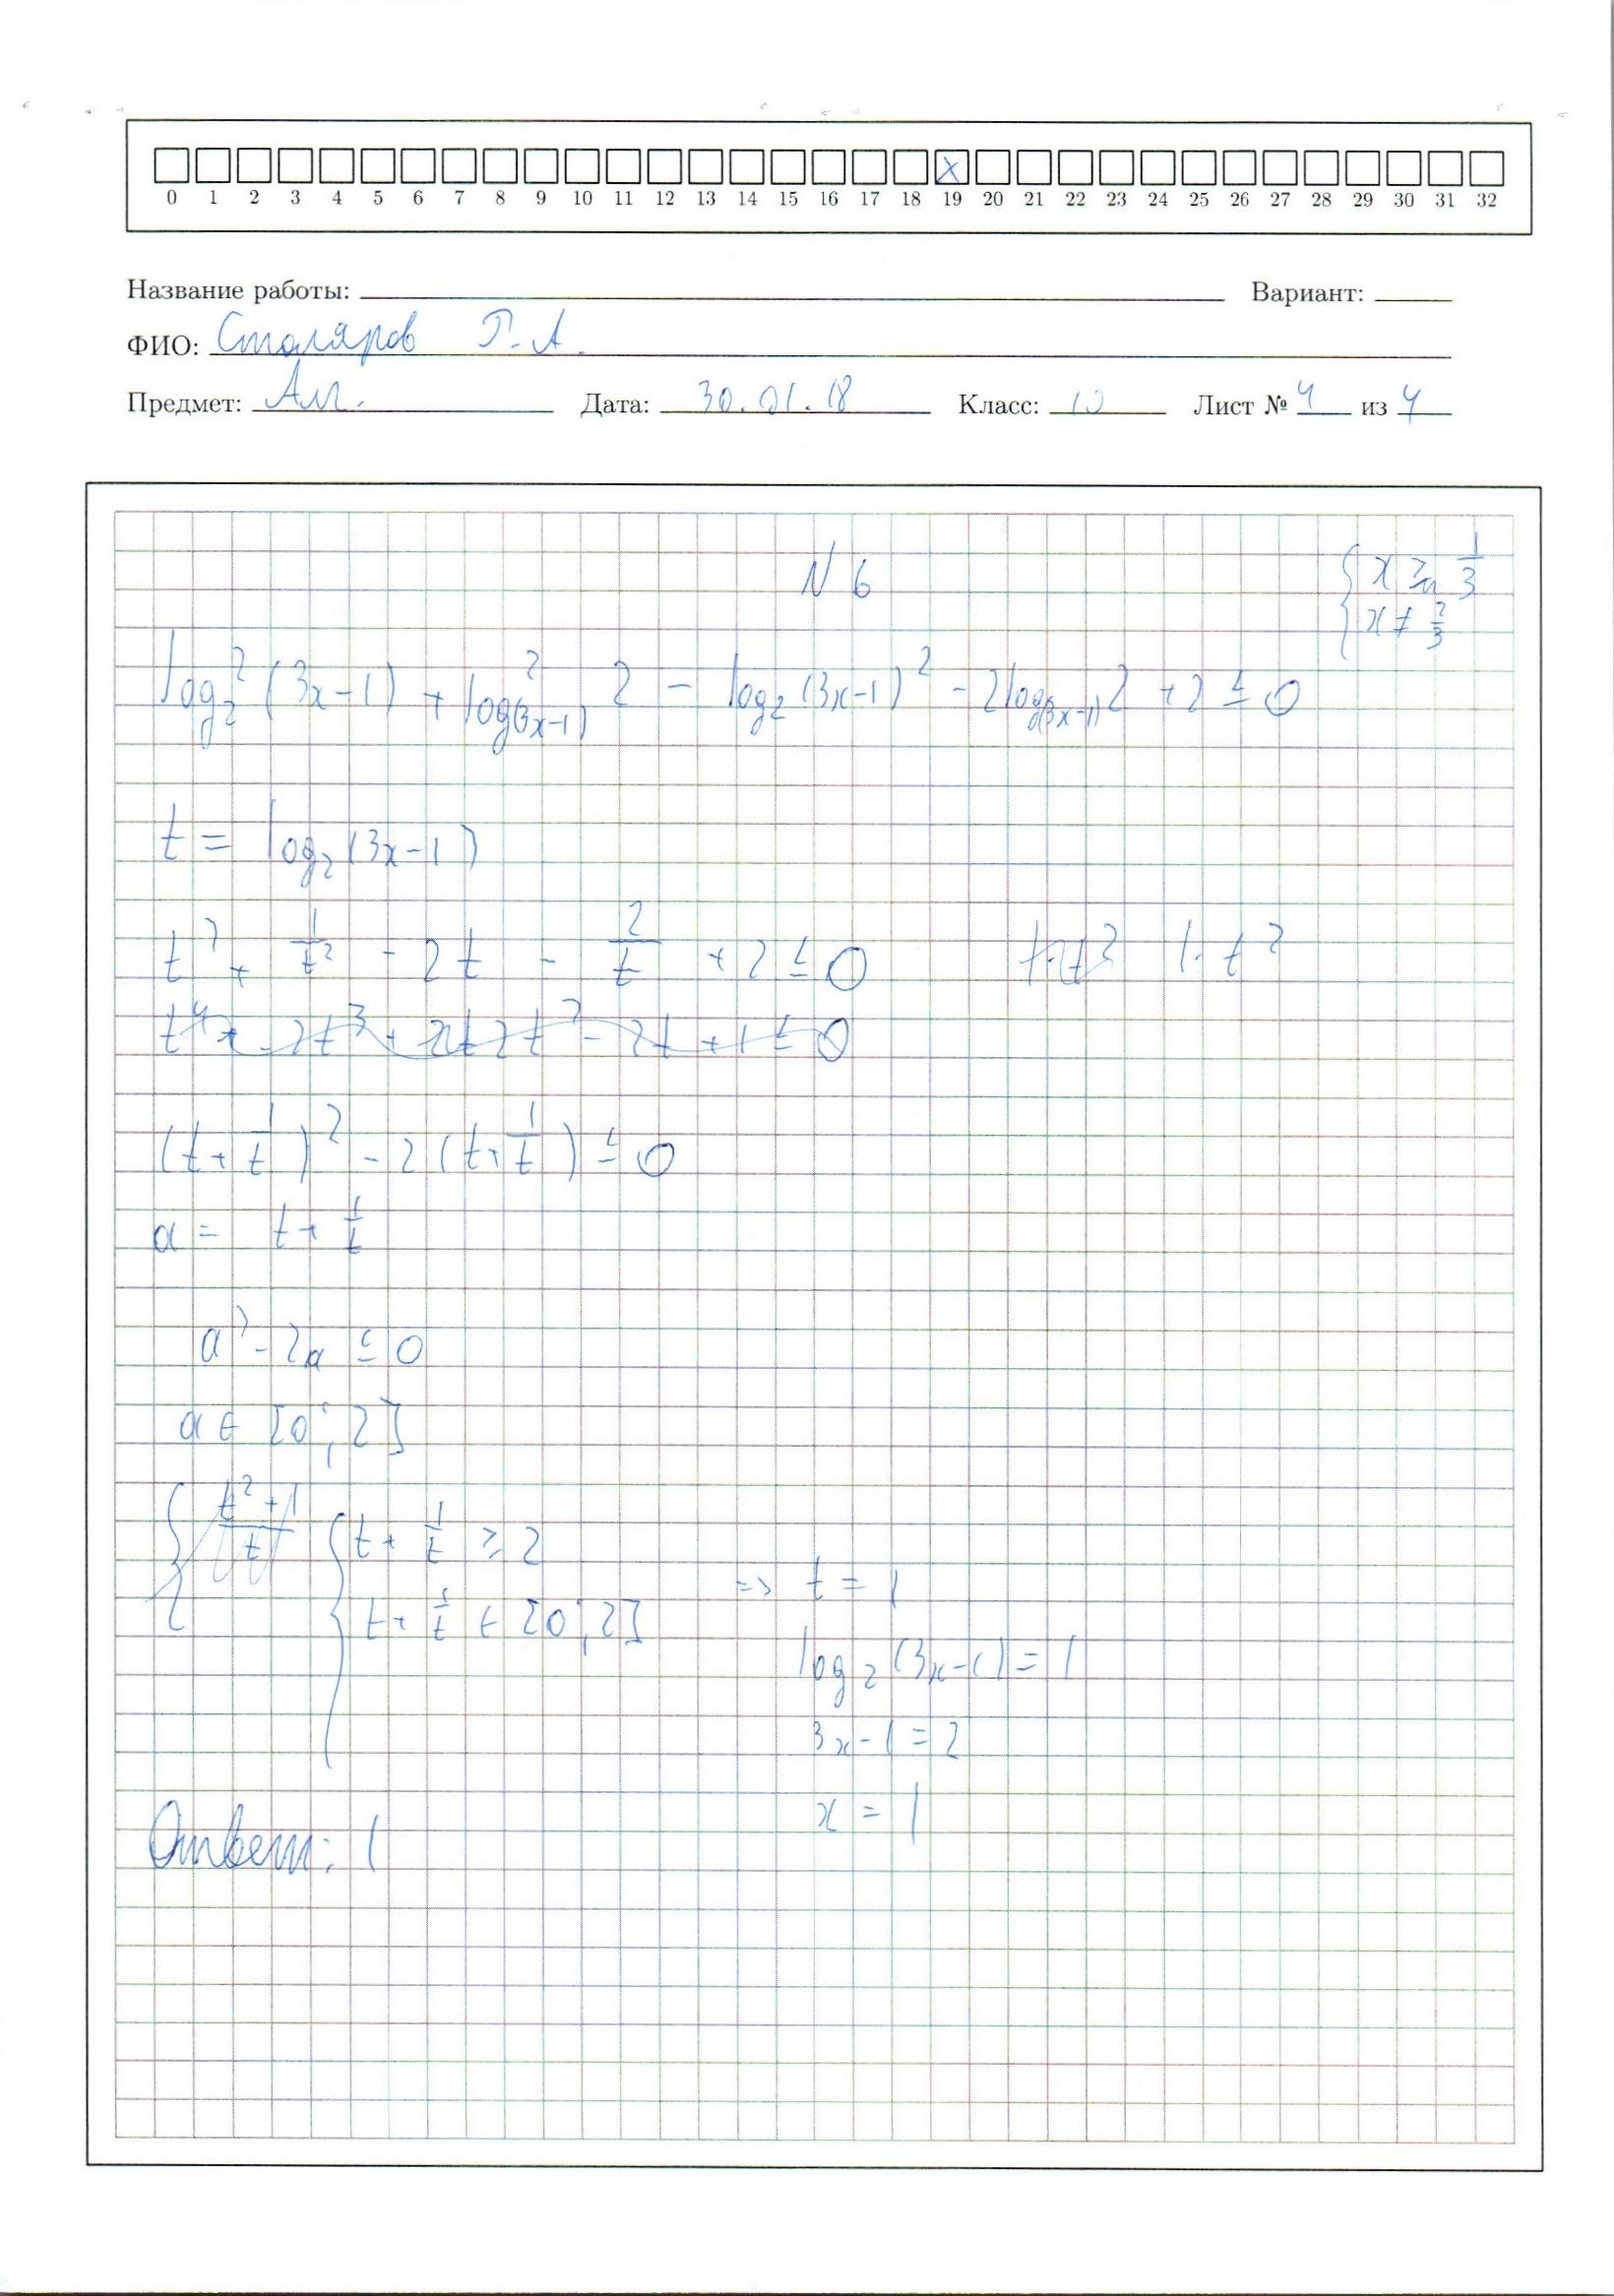 0 1 2 3 4 5 6 7 8 9 10 11 12 13 14 15 16 17 18 19 20 21 22 23 24 25 26 27 28 29 30 31 32
Название работы: Вариант:
ФИО: Столяров Г. А.
Предмет: Алг. Дата: 30.01.18 Класс: 10 Лист № 4 из 4
N 6
x > 1/3
x ≠ 2/3
log₂²(3x-1) + log²₍₃ₓ₋₁₎ 2 - log₂(3x-1)² - 2log₍₃ₓ₋₁₎2 + 2 ≤ 0
t = log₂(3x-1)
t² + 1/t² - 2t - 2/t + 2 ≤ 0 1·t²
(t + 1/t)² - 2(t + 1/t) ≤ 0
a = t + 1/t
a² - 2a ≤ 0
a ∈ [0; 2]
t + 1/t ≥ 2
t + 1/t ∈ [0; 2] => t = 1
log₂(3x-1) = 1
3x-1 = 2
x = 1
Ответ: 1